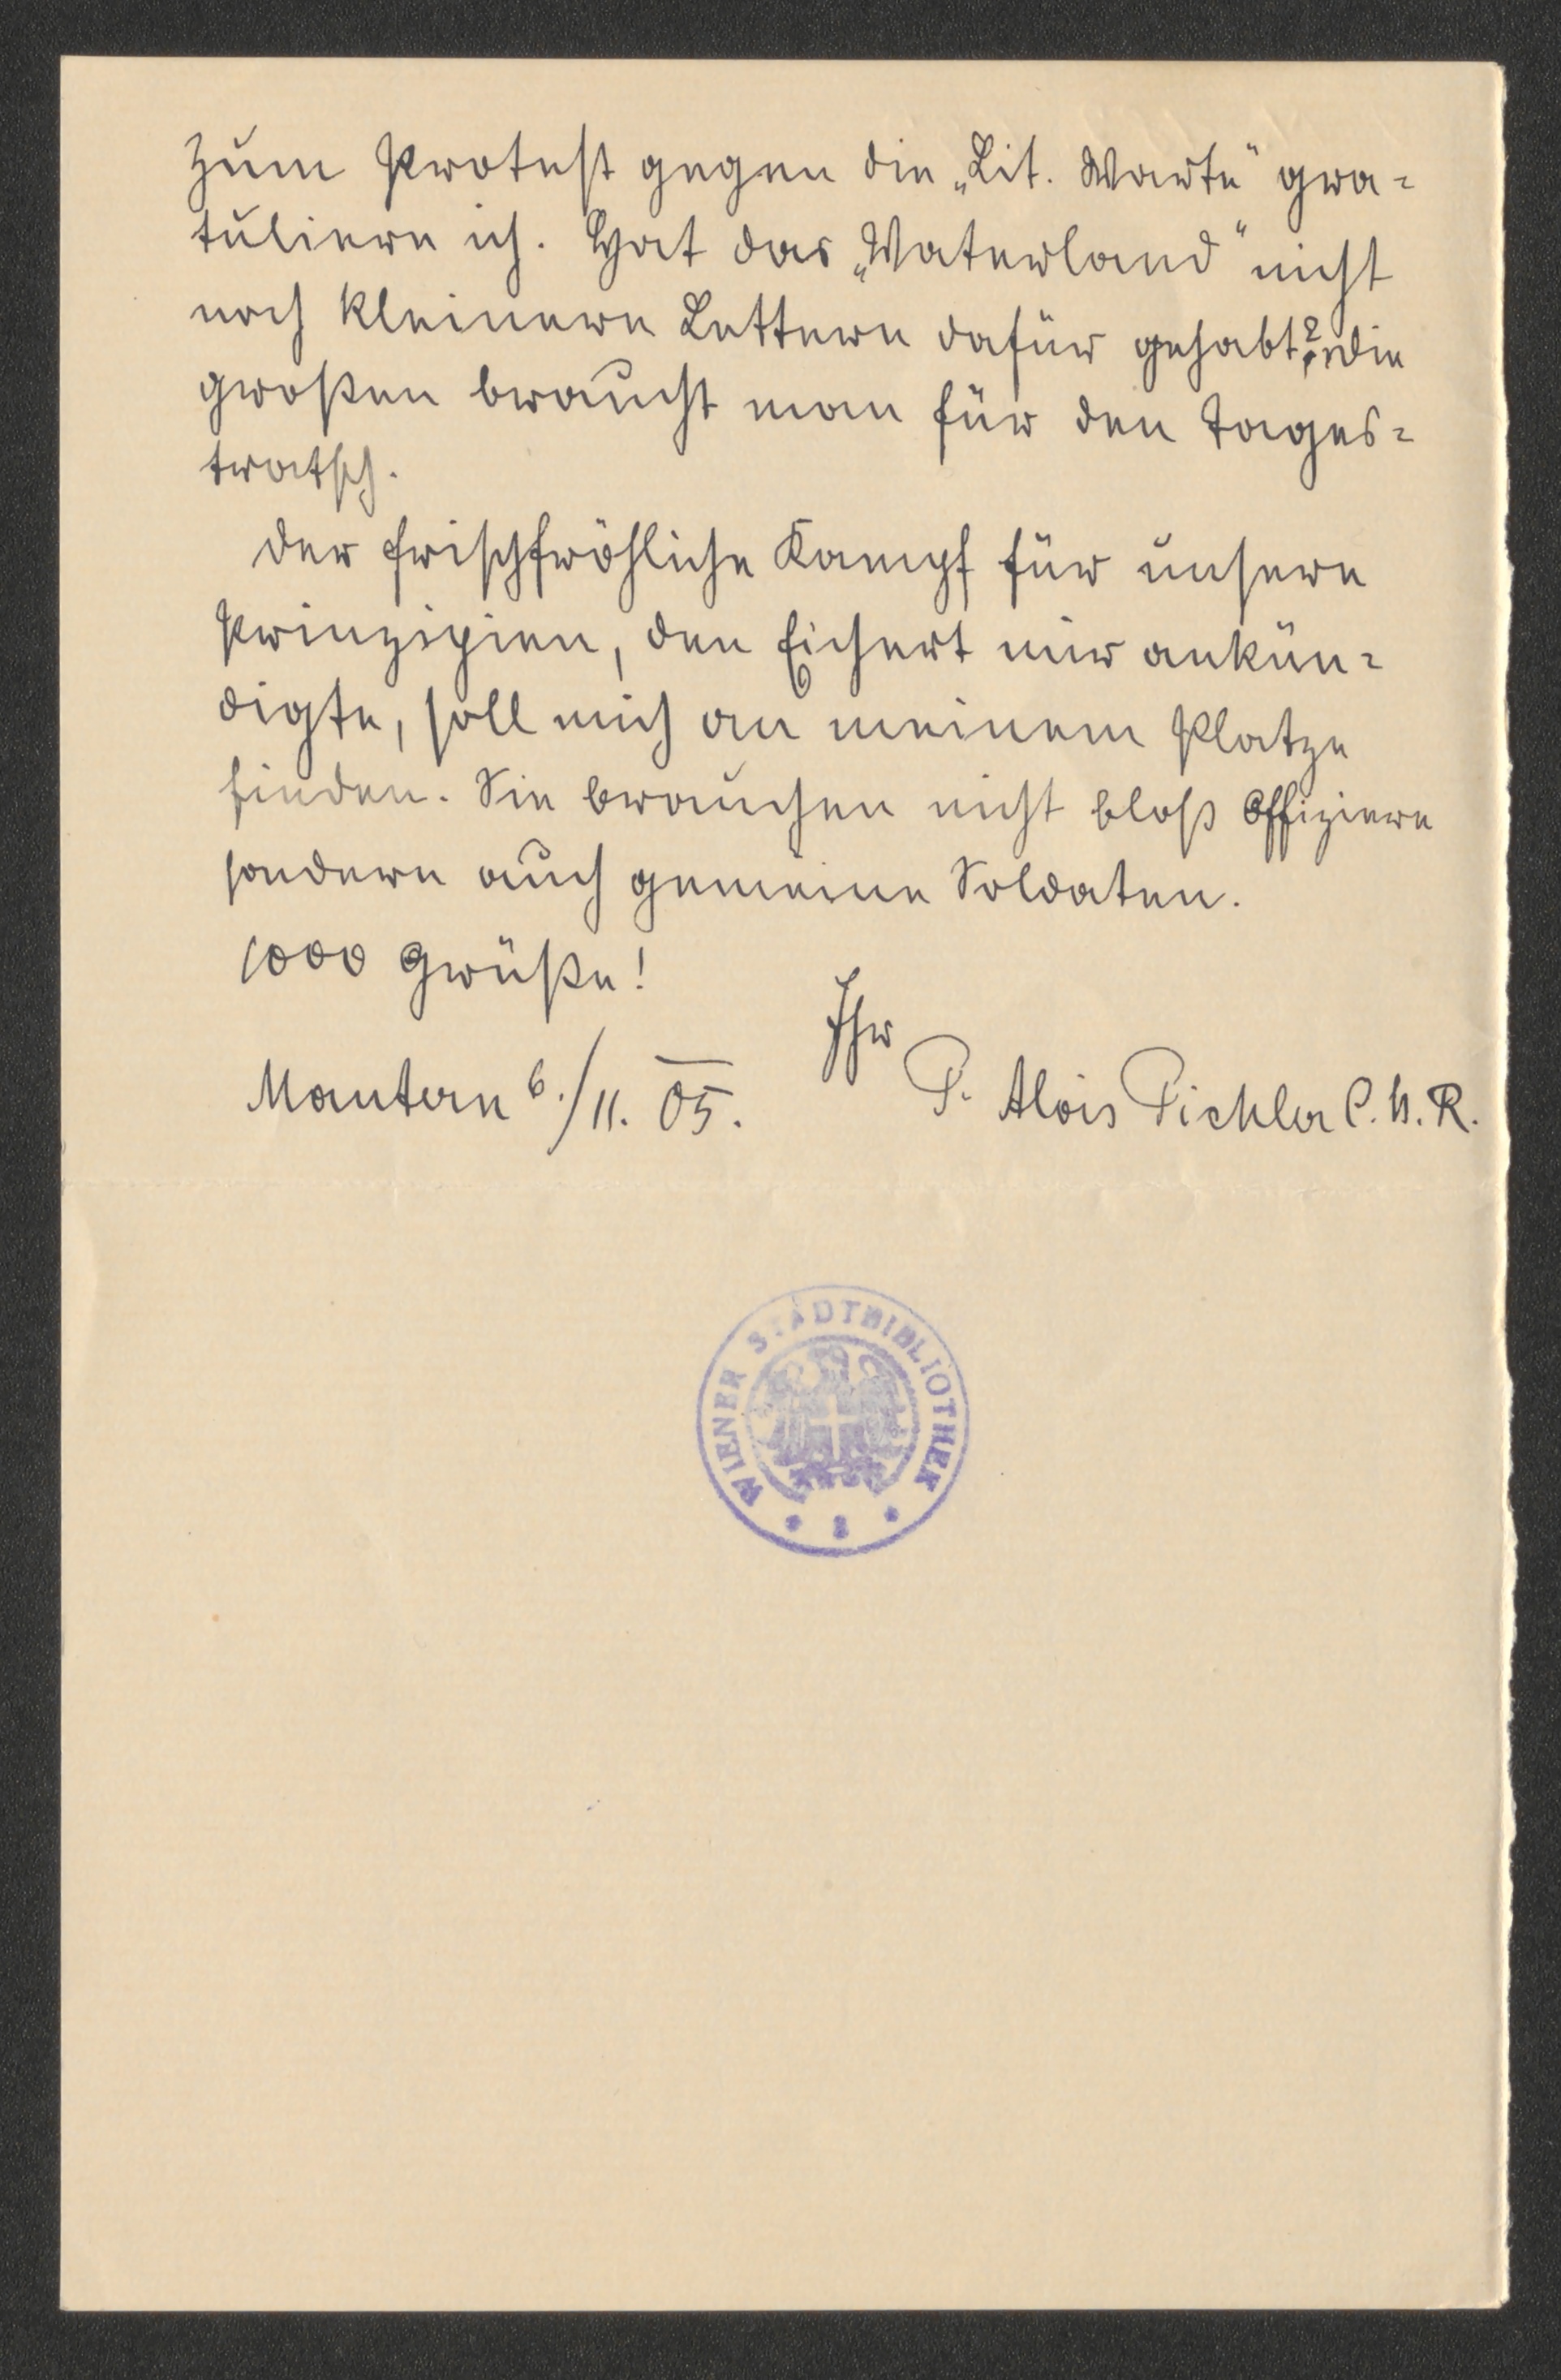 Zum Protest gegen die „Lit. Warte" gra=
tuliere ich. Hat das „Vaterland" nicht
noch kleinere Lettern dafür gehabt? Die
großen braucht man für den Tages=
tratsch.
Der frischfröhliche Kampf für unsere
Prinzipien, den Eichert mir ankün=
digte, soll mich an meinem Platze
finden. Sie brauchen nicht bloß Offiziere
sondern auch gemeine Soldaten.
1000 Grüße!
Ihr
Mautern 6./11. 05. P. Alois Pichler C. Ss. R.
WIENER STADTBIBLIOTHEK